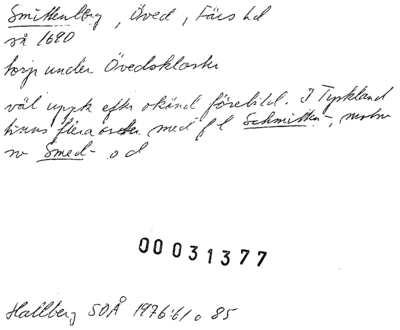 Smittenberg, Öved, Färs hd
så 1690
torp under Övedskloster
väl uppk efter okänd förebild. I Tyskland
finns flera orter med f l Schmitten-, motsv
sv Smed- o d
00031377
Hallberg SOÅ 1976:61 o 85